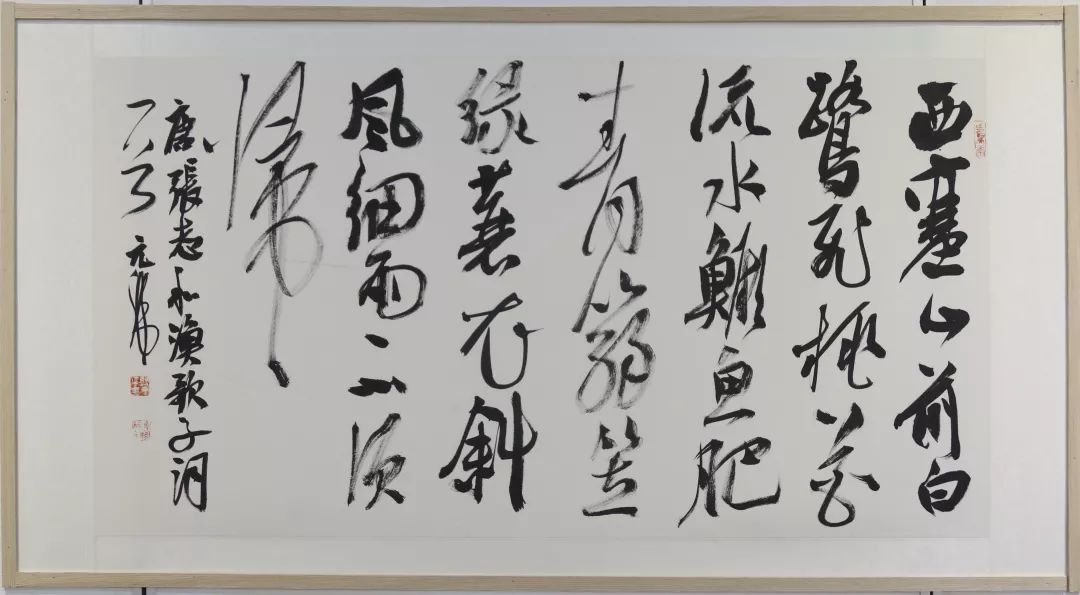 西塞山前白
鷺飛桃花
流水鱖魚肥
青篛笠
緑蓑衣斜
風細雨不須
歸
唐張志和漁歌子詞